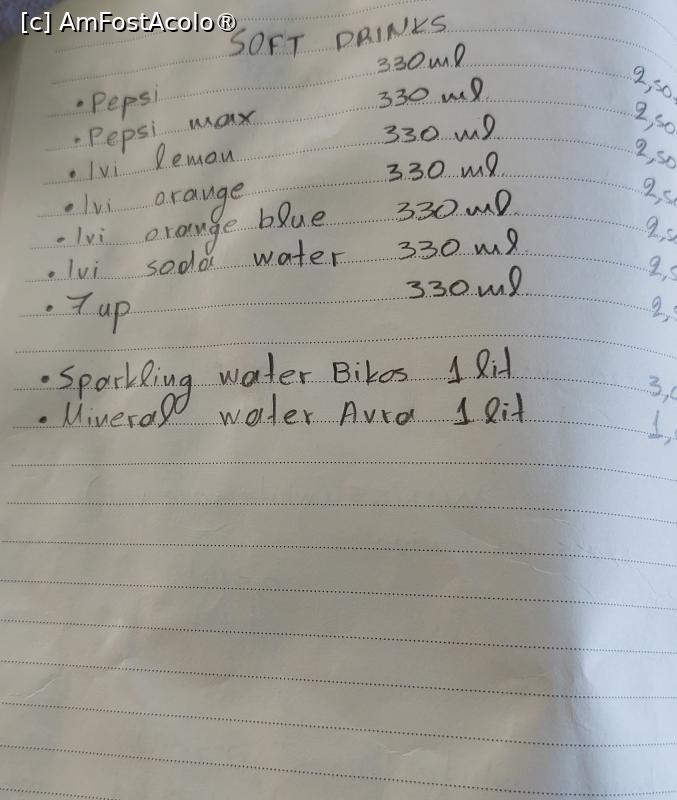 [c] AmFostAcolo®
SOFT DRINKS
• Pepsi 330 ml 2,50
• Pepsi max 330 ml 2,50
• Ivi lemon 330 ml 2,50
• Ivi orange 330 ml 2,5
• Ivi orange blue 330 ml 2,5
• Ivi soda water 330 ml 2,5
• 7 up 330 ml 2,
• Sparkling water Bikos 1 lit 3,0
• Mineral water Avra 1 lit 1,